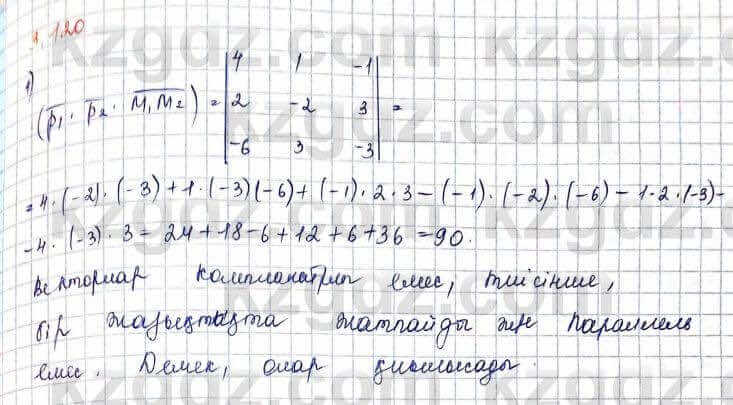 1.120
1)
(p₁ · p₂ · M₁M₂) = | 4 1 -1 |
| 2 -2 3 | =
| -6 3 -3 |
= 4 · (-2) · (-3) + 1 · (-3)(-6) + (-1) · 2 · 3 - (-1) · (-2) · (-6) - 1 · 2 · (-3) -
- 4 · (-3) · 3 = 24 + 18 - 6 + 12 + 6 + 36 = 90.
Векторлар компланарлы емес, тиісінше,
бір жазықтықта жатпайды және параллель
емес. Демек, олар қиылысады.
kzgdz.com